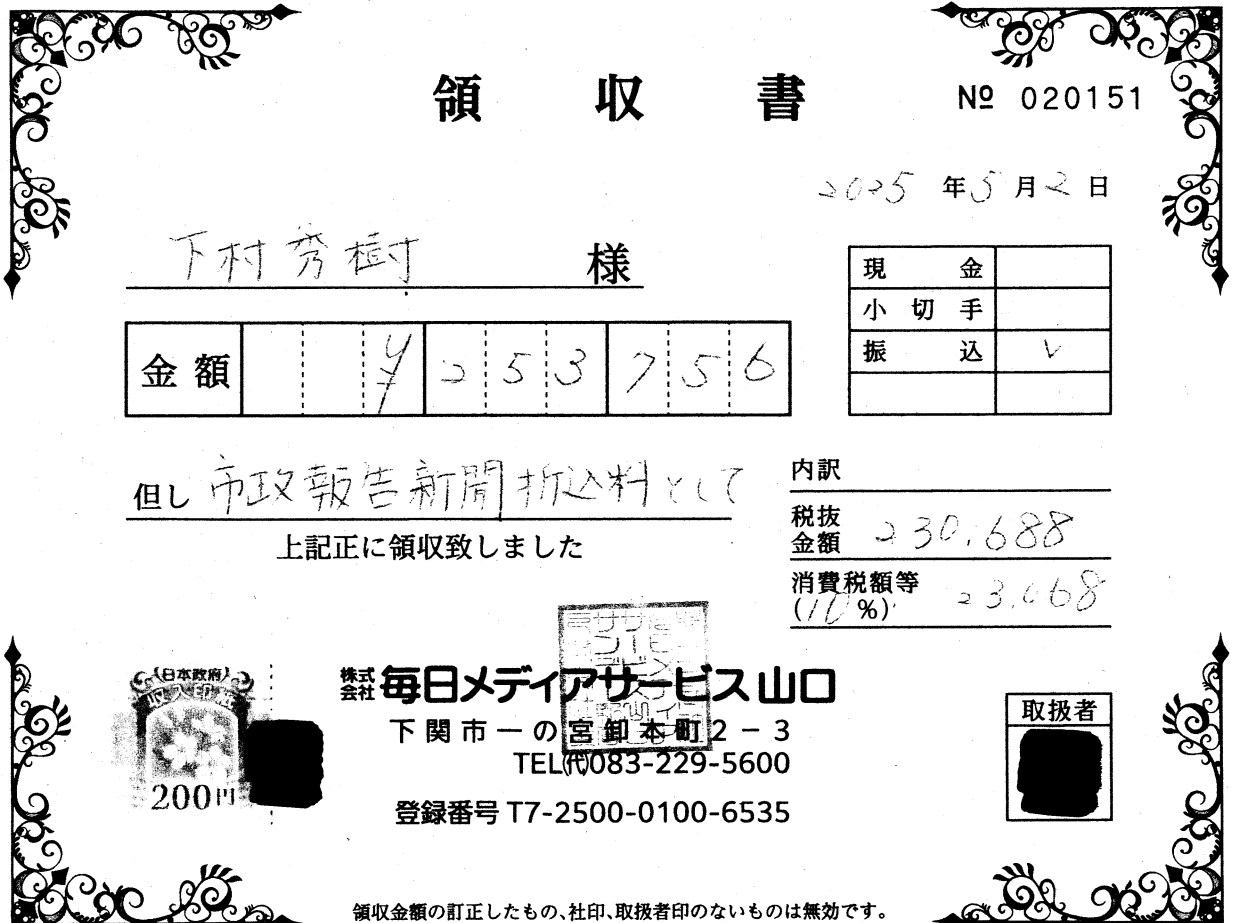 領収書
№ 020151
2025年5月2日
下村秀樹 様
現金
小切手
振込 ✓
金額 ¥253756
但し 市政報告新聞折込料として
上記正に領収致しました
内訳
税抜金額 230,688
消費税額等(10%) 23,068
日本政府
収入印紙
200円
株式会社 毎日メディアサービス山口
下関市一の宮卸本町2-3
TEL(代)083-229-5600
登録番号 T7-2500-0100-6535
取扱者
領収金額の訂正したもの、社印、取扱者印のないものは無効です。